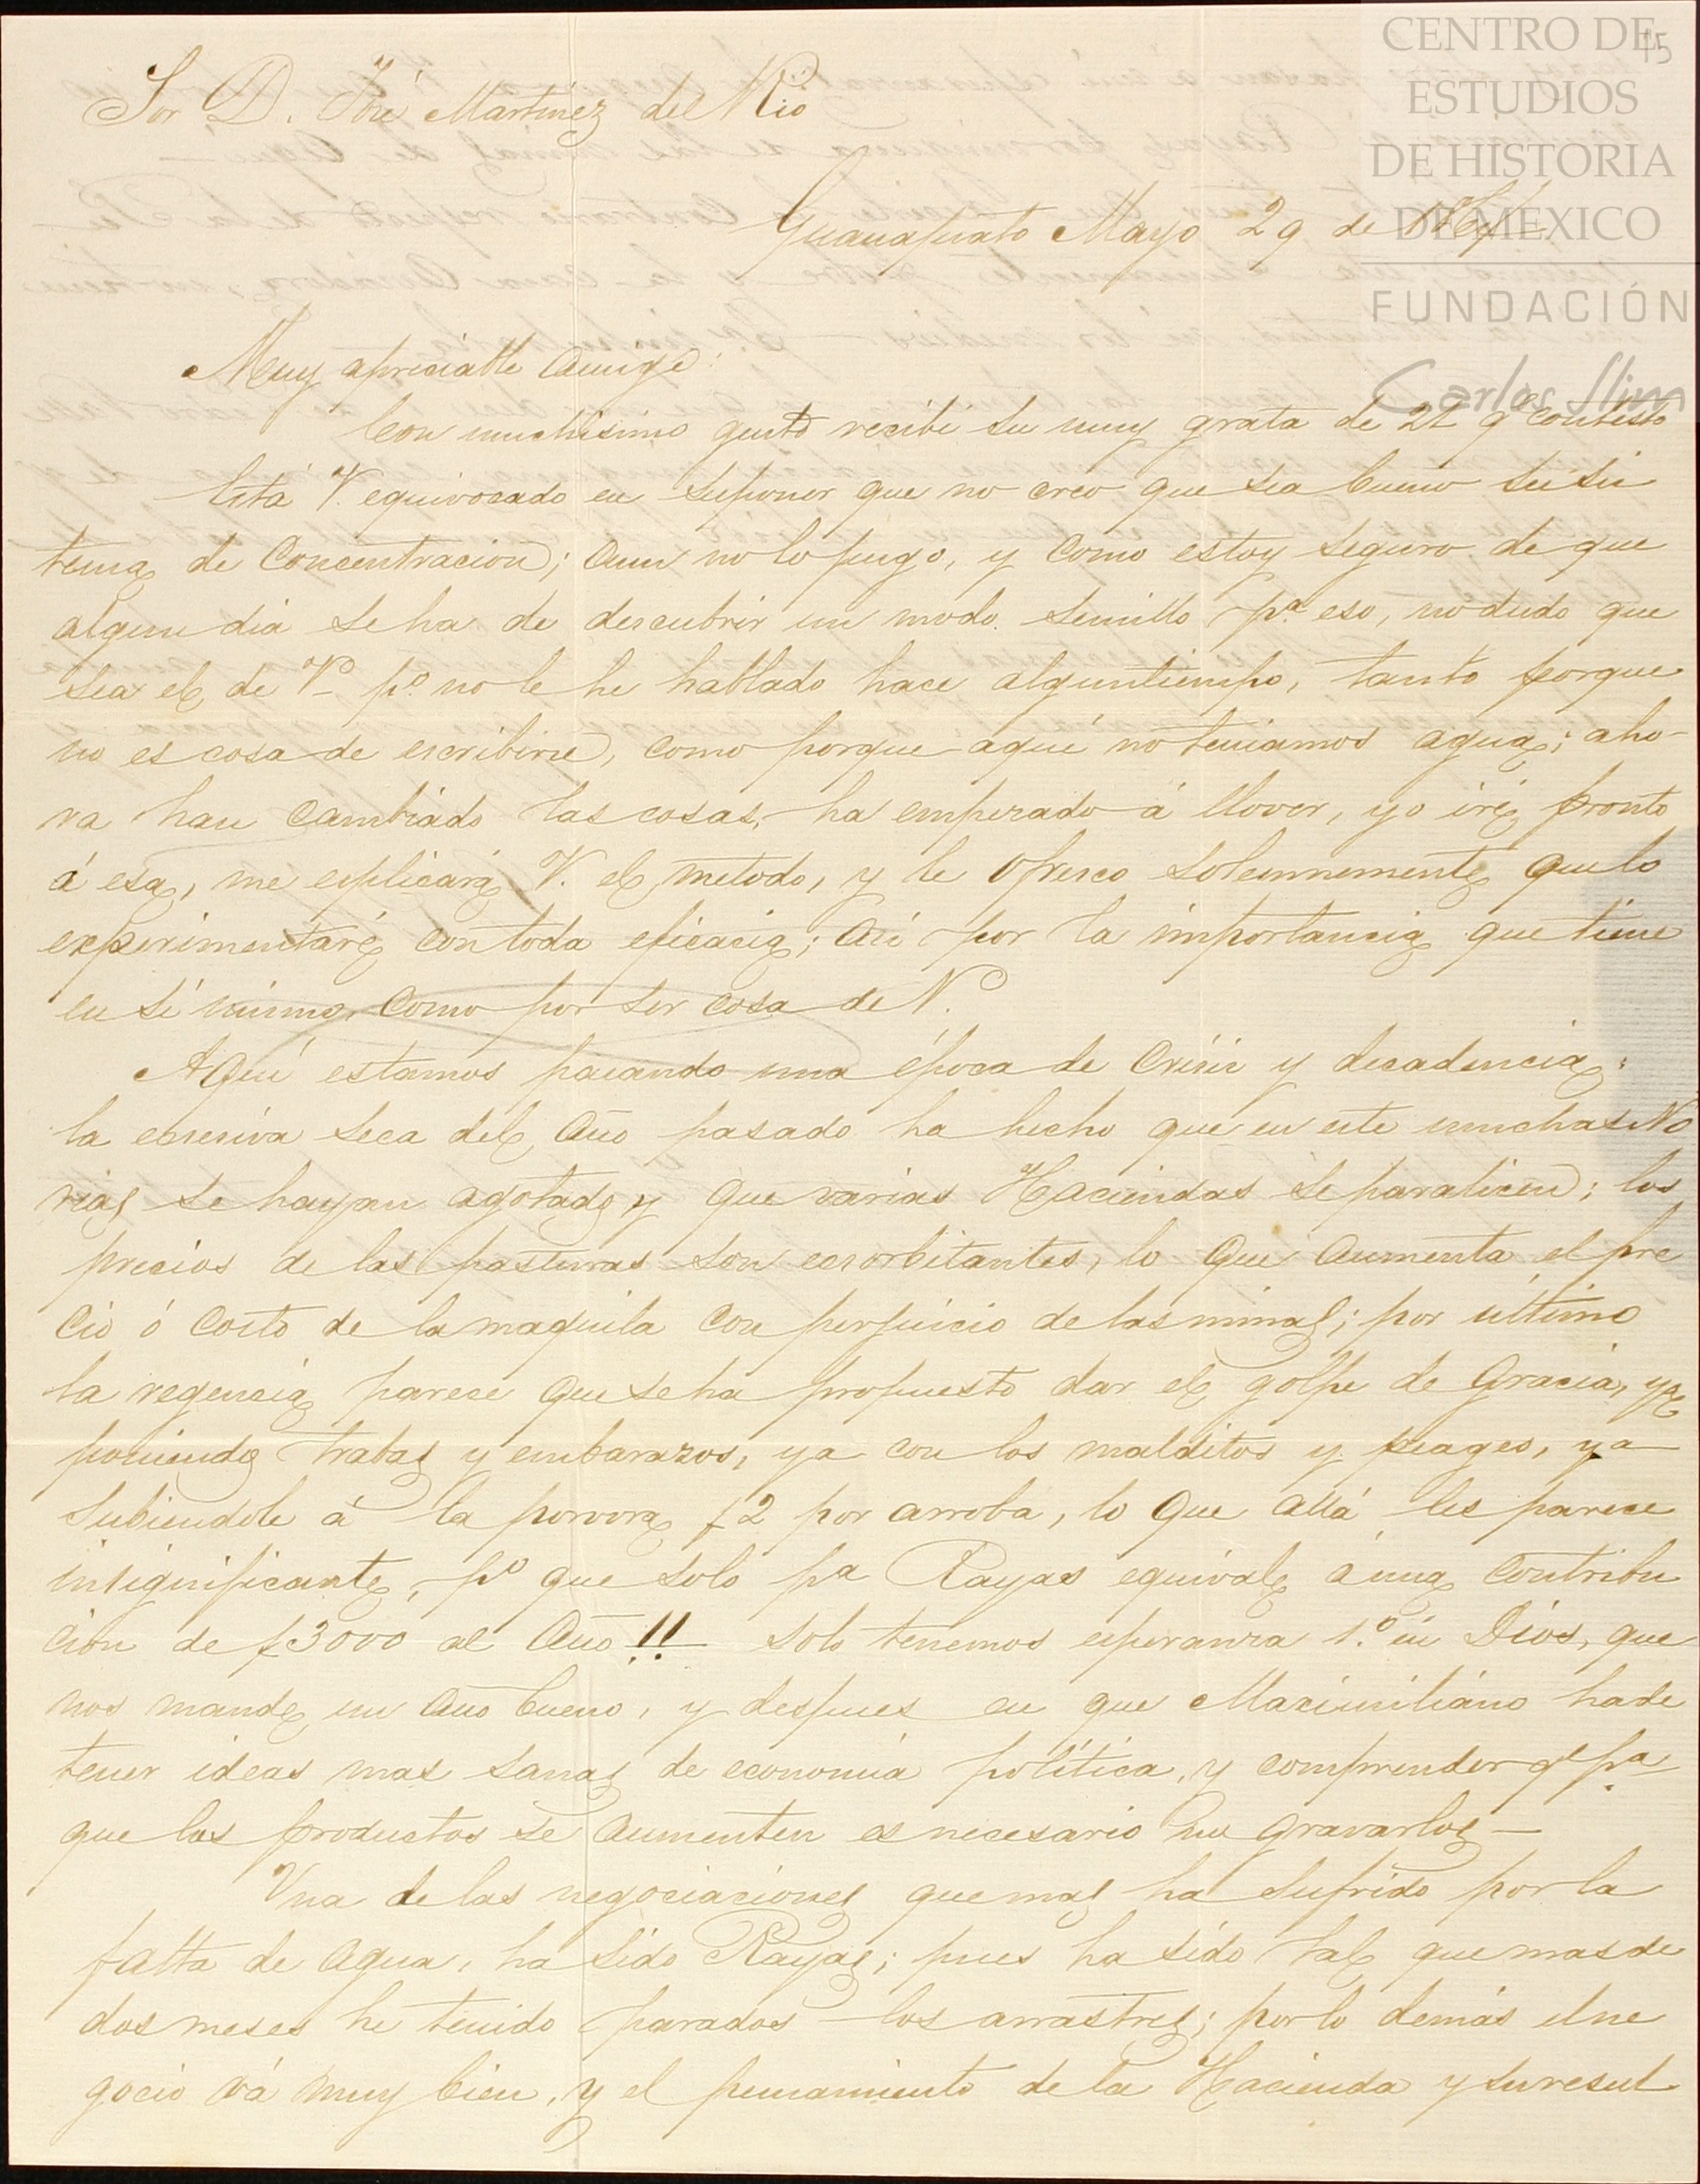 CENTRO DE
ESTUDIOS
DE HISTORIA
DE MEXICO
FUNDACIÓN
Carlos Slim
15
Sor D. José Martinez del Rio
Guanajuato Mayo 29 de
Muy apreciable amigo:
Con muchisimo gusto recibi su muy grata de 21 qe contesto
Está V. equivocado en suponer que no creo que sea bueno su sis
tema de Concentracion; aun no lo juzgo, y como estoy seguro de que
algun dia se ha de descubrir un modo sencillo pa. eso, no dudo que
sea el de V. po. no le he hablado hace algun tiempo, tanto porque
no es cosa de escribirse, como porque aqui no teniamos agua; aho-
ra han cambiado las cosas, ha empezado á llover, yo iré pronto
á esa, me esplicará V. el metodo, y le ofresco solemnemente que lo
experimentaré con toda eficacia; asi por la importancia que tiene
en sí mismo, como por ser cosa de V.
Aquí estamos pasando una época de crisis y decadencia:
la escesiva seca del año pasado ha hecho que en este muchas No
rias se hayan agotado y que varias Haciendas se paralicen; los
precios de las pasturas son ecsorbitantes, lo que aumenta el pre
cio ó costo de la maquila con perjuicio de las minas; por último
la regencia parece que se ha propuesto dar el golpe de gracia, ya
poniendo trabas y embarazos, ya con los malditos y peages, ya
subiendole á la porvora $2 por arroba, lo que allá les parece
insignificante, po que solo pa Rayas equivale á una contribu
cion de $3000 al año!! solo tenemos esperanza 1.o en Dios, que
nos mande un año bueno, y despues en que Maximiliano ha de
tener ideas mas sanas de economía política, y comprender qe pa
que los productos se aumenten es necesario no gravarlos—
Una de las negociaciones que mas ha sufrido por la
falta de agua, ha sido Rayas; pues ha sido tal que mas de
dos meses he tenido parados los arrastres; por lo demás el ne
gocio vá muy bien, y el pensamiento de la Hacienda y su resul